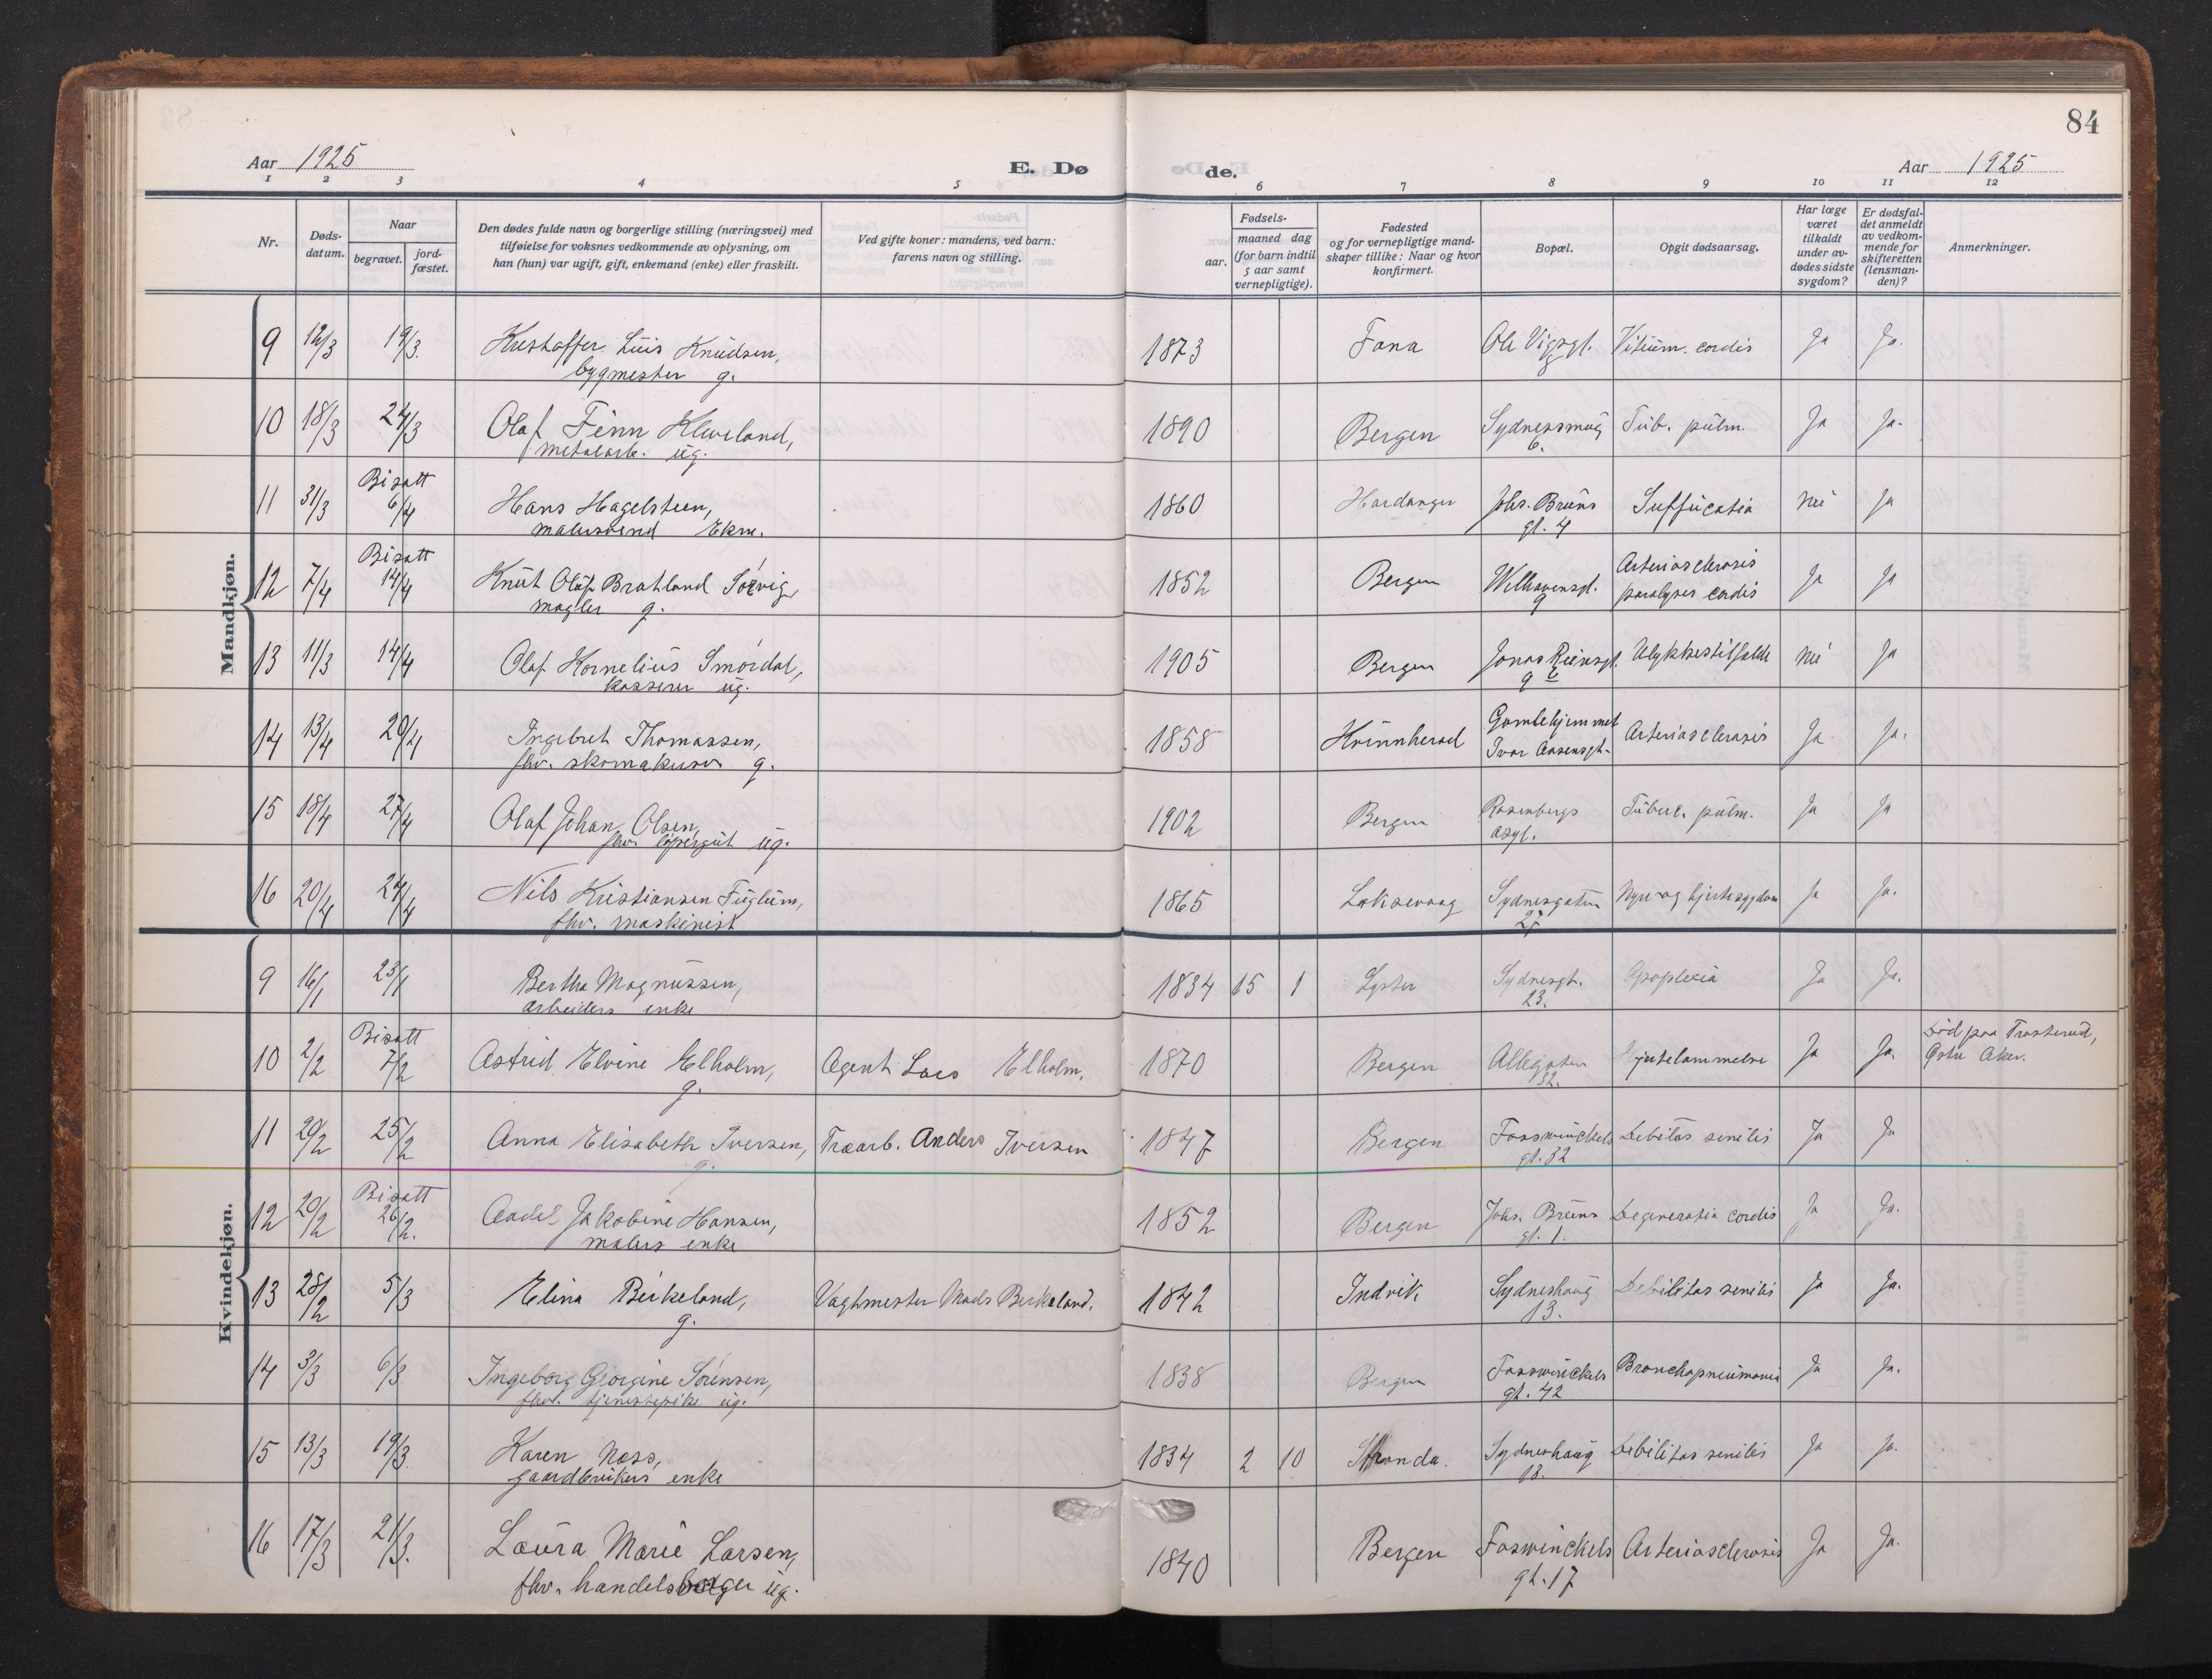 84
Aar 1925 E. Dø de. Aar 1925
1 2 3 4 5 6 7 8 9 10 11 12
Nr.
Døds-datum.
Naar
begravet.
jord-fæstet.
Den dødes fulde navn og borgerlige stilling (næringsvei) med
tilføielse for voksnes vedkommende av oplysning, om
han (hun) var ugift, gift, enkemand (enke) eller fraskilt.
Ved gifte koner: mandens, ved barn:
farens navn og stilling.
Fødsels-
aar.
maaned dag
(for barn indtil
5 aar samt
vernepligtige).
Fødested
og for vernepligtige mand-
skaper tillike: Naar og hvor
konfirmert.
Bopæl.
Opgit dødsaarsag.
Har læge
været
tilkaldt
under av-
dødes sidste
sygdom?
Er dødsfal-
det anmeldt
av vedkom-
mende for
skifteretten
(lensman-
den)?
Anmerkninger.
Mandkjøn.
9 12/3 19/3. Kristoffer Luis Knudsen, 1873 Fana Ole Vigsgt. Vitium cordis Ja Ja.
bygmester g.
10 18/3 24/3 Olaf Finn Kleveland, 1890 Bergen Sydnessmug Tub. pulm. Ja Ja.
metalarb. ug. 6.
Bisatt
11 31/3 6/4 Hans Hagelsteen, 1860 Hardanger Johs. Bruns Suffucatia Nei Ja
malersvend Ekm. gt. 4
Bisatt Arteriosclerosis
12 7/4 14/4 Knut Olaf Bratland Sørvig, 1852 Bergen Welhavensgt. paralyses cordis Ja Ja
mægler g. 9
13 11/3 14/4 Olaf Kornelius Smørdal, 1905 Bergen Jonas Reinsgt. Ulykkestilfælde Nei Ja
kasserer ug. 9
Gamlehjemmet
14 13/4 20/4 Ingebret Thomassen, 1858 Kvinnherad Ivar Aasensgt. Arteriosclerosis Ja Ja.
fhv. skomaker g.
15 18/4 27/4 Olaf Johan Olsen, 1902 Bergen Rosenbergs Tuberc. pulm. Ja Ja
fhv. løpergut ug. asyl.
16 20/4 24/4 Nils Kristiansen Fuglum, 1865 Laksevaag Sydnesgaten Nyre og hjertesygdom Ja Ja.
fhv. maskinist
Kvindekjøn.
9 16/1 23/1 Bertha Magnussen, 1834 15 1 Lyster Sydnesgt. Apoplexia Ja Ja.
arbeiders enke 23.
Bisatt Død paa Trosterud,
10 2/2 7/2 Astrid Elvine Elholm, Agent Lars Elholm. 1870 Bergen Allegaten Hjertelammelse Ja Ja. Østre Aker.
g. 32.
11 20/2 25/2 Anna Elisabeth Iversen, Træarb. Anders Iversen 1847 Bergen Fosswinckels Debilitas senilis Ja Ja
g. gt. 32
Bisatt
12 20/2 26/2. Aadel Jakobine Hansen, 1852 Bergen Johs. Bruns Degeneratia cordis Ja Ja.
malers enke gt. 1.
13 28/2 5/3 Elina Birkeland, Vagtmester Mads Birkeland. 1842 Indvik Sydneshaug Debilitas senilis Ja Ja.
g. 13.
14 3/3 6/3 Ingeborg Georgine Sørensen, 1838 Bergen Fosswinckels Bronchopneumonia Ja Ja.
fhv. tjenestepike ug. gt. 42
15 13/3 19/3. Karen Næss, 1834 2 10 Stranda. Sydneshaug Debilitas senilis Ja Ja.
gaardbrukers enke 13.
16 17/3 21/3. Laura Marie Larsen, 1840 Bergen Foswinckels Arteriosclerosis Ja Ja.
fhv. handelsborger ug. gt. 17